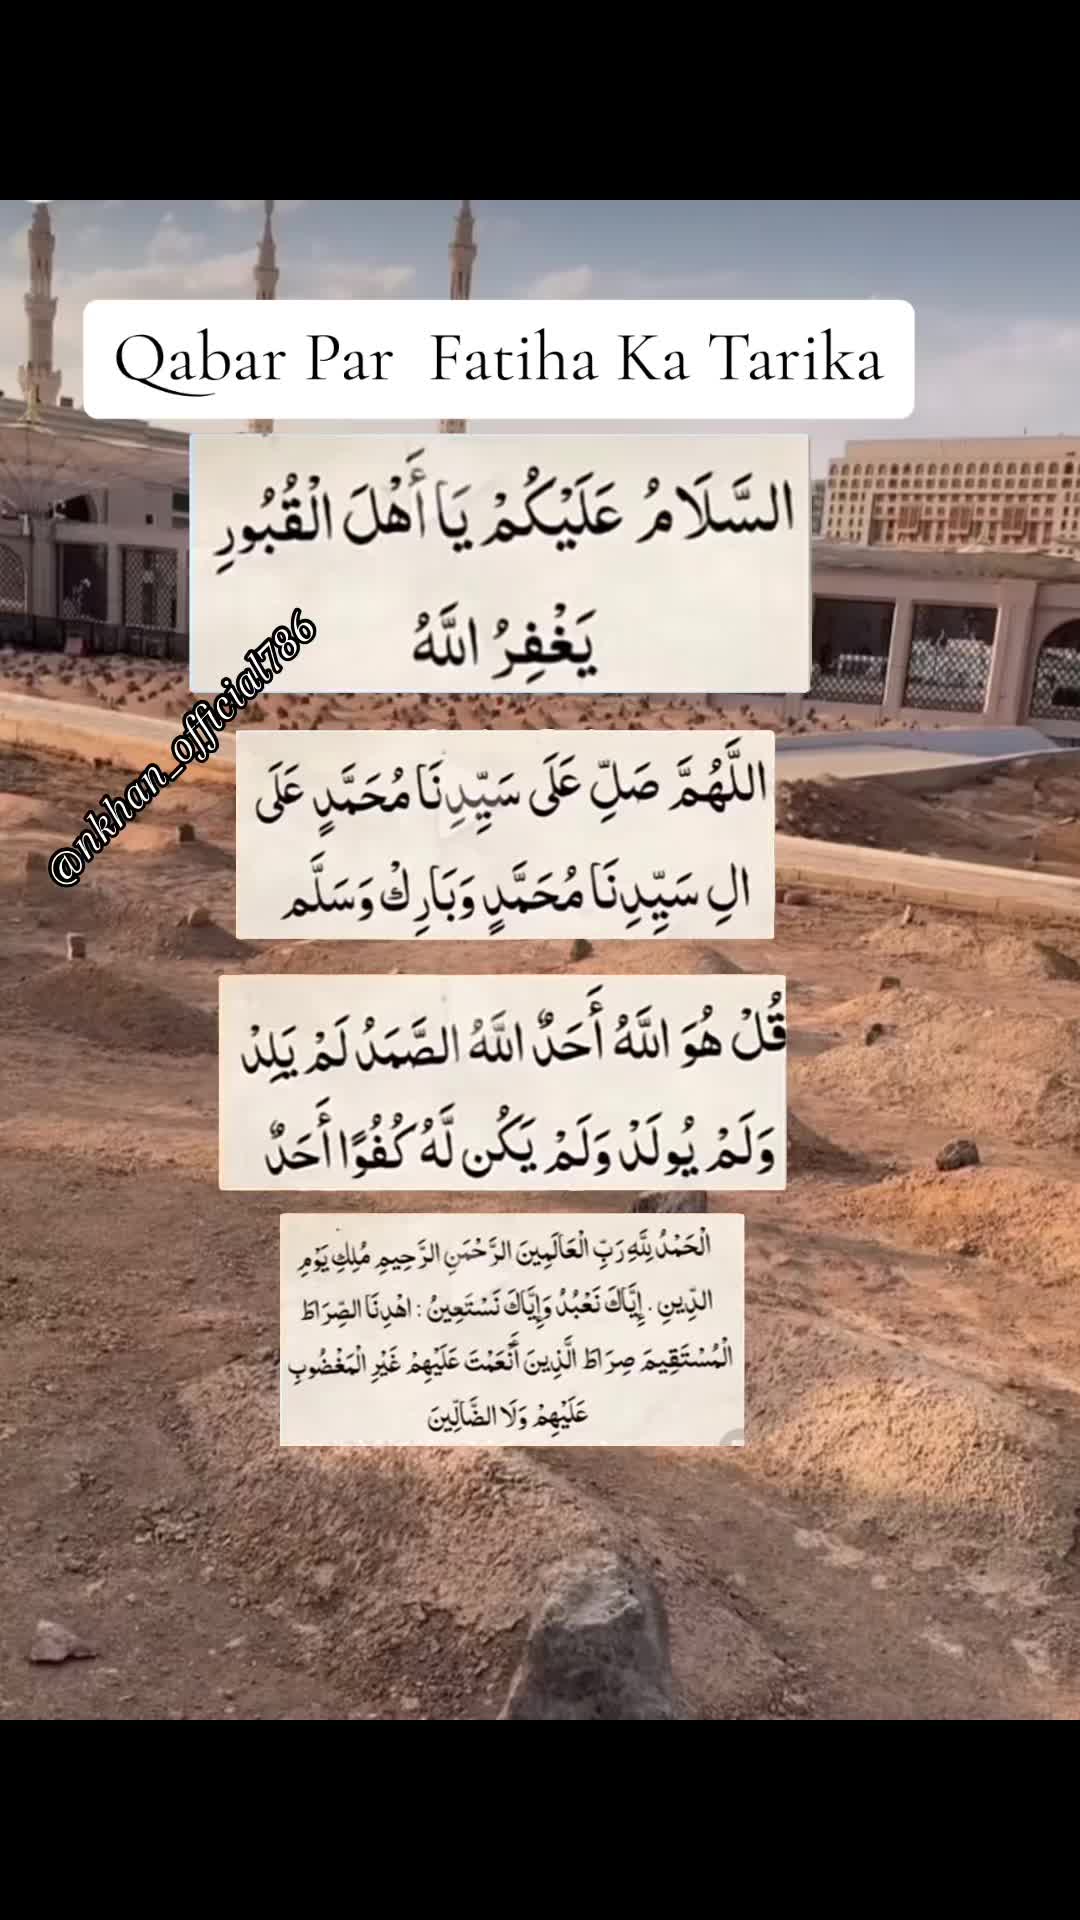 Qabar Par Fatiha Ka Tarika
السَّلَامُ عَلَيْكُمْ يَا أَهْلَ الْقُبُورِ
يَغْفِرُ اللَّهُ
@nkhan_official786
اللَّهُمَّ صَلِّ عَلَى سَيِّدِنَا مُحَمَّدٍ عَلَى
الِ سَيِّدِنَا مُحَمَّدٍ وَبَارِكْ وَسَلَّم
قُلْ هُوَ اللَّهُ أَحَدٌ اللَّهُ الصَّمَدُ لَمْ يَلِدْ
وَلَمْ يُولَدْ وَلَمْ يَكُن لَّهُ كُفُوًا أَحَدٌ
الْحَمْدُ لِلَّهِ رَبِّ الْعَالَمِينَ الرَّحْمَنِ الرَّحِيمِ مُلِكِ يَوْمِ
الدِّينِ . إِيَّاكَ نَعْبُدُ وَإِيَّاكَ نَسْتَعِينُ : اهْدِنَا الصِّرَاطَ
الْمُسْتَقِيمَ صِرَاطَ الَّذِينَ أَنْعَمْتَ عَلَيْهِمْ غَيْرِ الْمَغْضُوبِ
عَلَيْهِمْ وَلَا الضَّالِّينَ